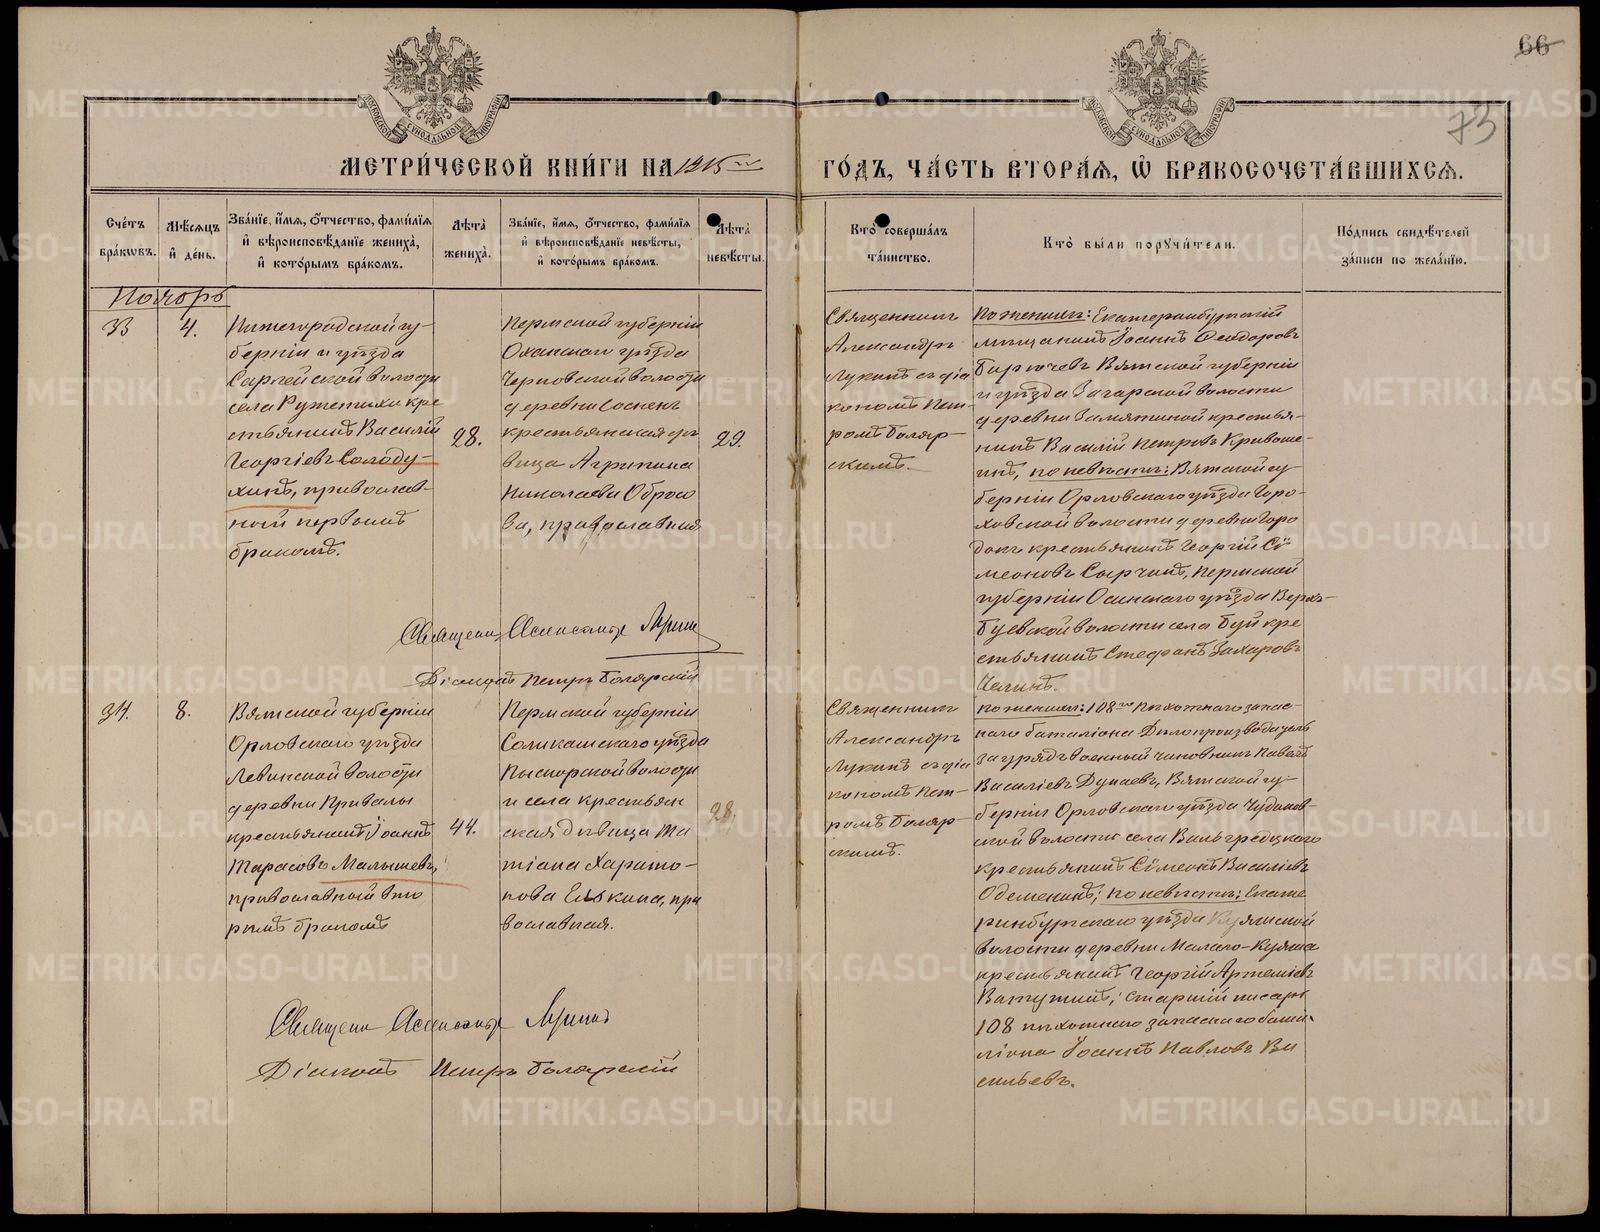 66
73
МОСКОВСКОЙ СѴНОДАЛЬНОЙ ТИПОГРАФІИ
МОСКОВСКОЙ СѴНОДАЛЬНОЙ ТИПОГРАФІИ
МЕТРИ́ЧЕСКОЙ КНИ́ГИ НА 1915 й
ГО́ДЪ, ЧА́СТЬ ВТОРА́Ѧ, Ѡ БРАКОСОЧЕТА́ВШИХСѦ.
Сче́тъ бра́кѡвъ.
Мѣ́сѧцъ и҆ де́нь.
Зва́нїе, и҆́мѧ, ѻ҆́тчество, фами́лїѧ и҆ вѣроисповѣ́данїе жениха̀, и҆ кото́рымъ бра́комъ.
Лѣта̀ жениха̀.
Зва́нїе, и҆́мѧ, ѻ҆́тчество, фами́лїѧ и҆ вѣроисповѣ́данїе невѣ́сты, и҆ кото́рымъ бра́комъ.
Лѣта̀ невѣ́сты.
Кто̀ соверша́лъ та́инство.
Кто̀ бы́ли порꙋчи́тели.
По́дпись свидѣ́телей за́писи по жела́нїю.
Ноябрь
33
4.
Нижегородской гу-
берніи и уѣзда
волости
села Ружетихи кре
стьянинъ Василій
Георгіевъ Солоду-
хинъ, православ-
ный первымъ
бракомъ.
28.
Пермской губерніи
Оханскаго уѣзда
Черновской волости
деревни
крестьянская дѣ
вица Агрипина
Николаева Оброс
ва, православная
29.
Священникъ
Александръ
Лукинъ съ діа
кономъ Пет-
ромъ Боляр-
скимъ.
По женихѣ: Екатеринбургскій
мѣщанинъ Іоаннъ Ѳеодоровъ
Бирючевъ Вятской губерніи
и уѣзда Загарской волости
деревни Замятиной крестья-
нинъ Василій Петровъ Кривоше-
инъ, по невѣстѣ: Вятской гу-
берніи Орловскаго уѣзда Горо-
ховской волости деревни Горо
докъ крестьянинъ Георгій Сѵ
меоновъ Сырчинъ, Пермской
губерніи Осинскаго уѣзда Верхъ-
Буевской волости села Буй кре
стьянинъ Стефанъ Захаровъ
Челинъ.
Священникъ Александръ Лукинъ
Діаконъ Петръ Болярскій
34.
8.
Вятской губерніи
Орловскаго уѣзда
Левинской волости
деревни Привалы
крестьянинъ Іоаннъ
Тарасовъ Малышевъ,
православный вто
рымъ бракомъ
44.
Пермской губерніи
Соликамскаго уѣзда
Пыскорской волости
и села крестьян
ская дѣвица Та
тіана Харито-
нова Елькина, пра
вославная.
28.
Священникъ
Александръ
Лукинъ съ діа
кономъ Пет-
ромъ Боляр-
скимъ.
По женихѣ: 108го пѣхотнаго запас-
наго баталіона Дѣлопроизводитель
зауряд военный чиновникъ Павелъ
Василіевъ Дунаевъ, Вятской гу-
берніи Орловскаго уѣзда Чудинов-
ской волости села
крестьянинъ Сѵмеонъ Василіевъ
по невѣстѣ: Екате
ринбургскаго уѣзда Куяшской
волости деревни Малаго-Куяша
крестьянинъ Георгій Артеміевъ
Ватутинъ; старшій писарь
108 пѣхотнаго запаснаго бата-
ліона Іоаннъ Павловъ Ва
сильевъ.
Священникъ Александръ Лукинъ
Діаконъ Петръ Болярскій
METRIKI.GASO-URAL.RU